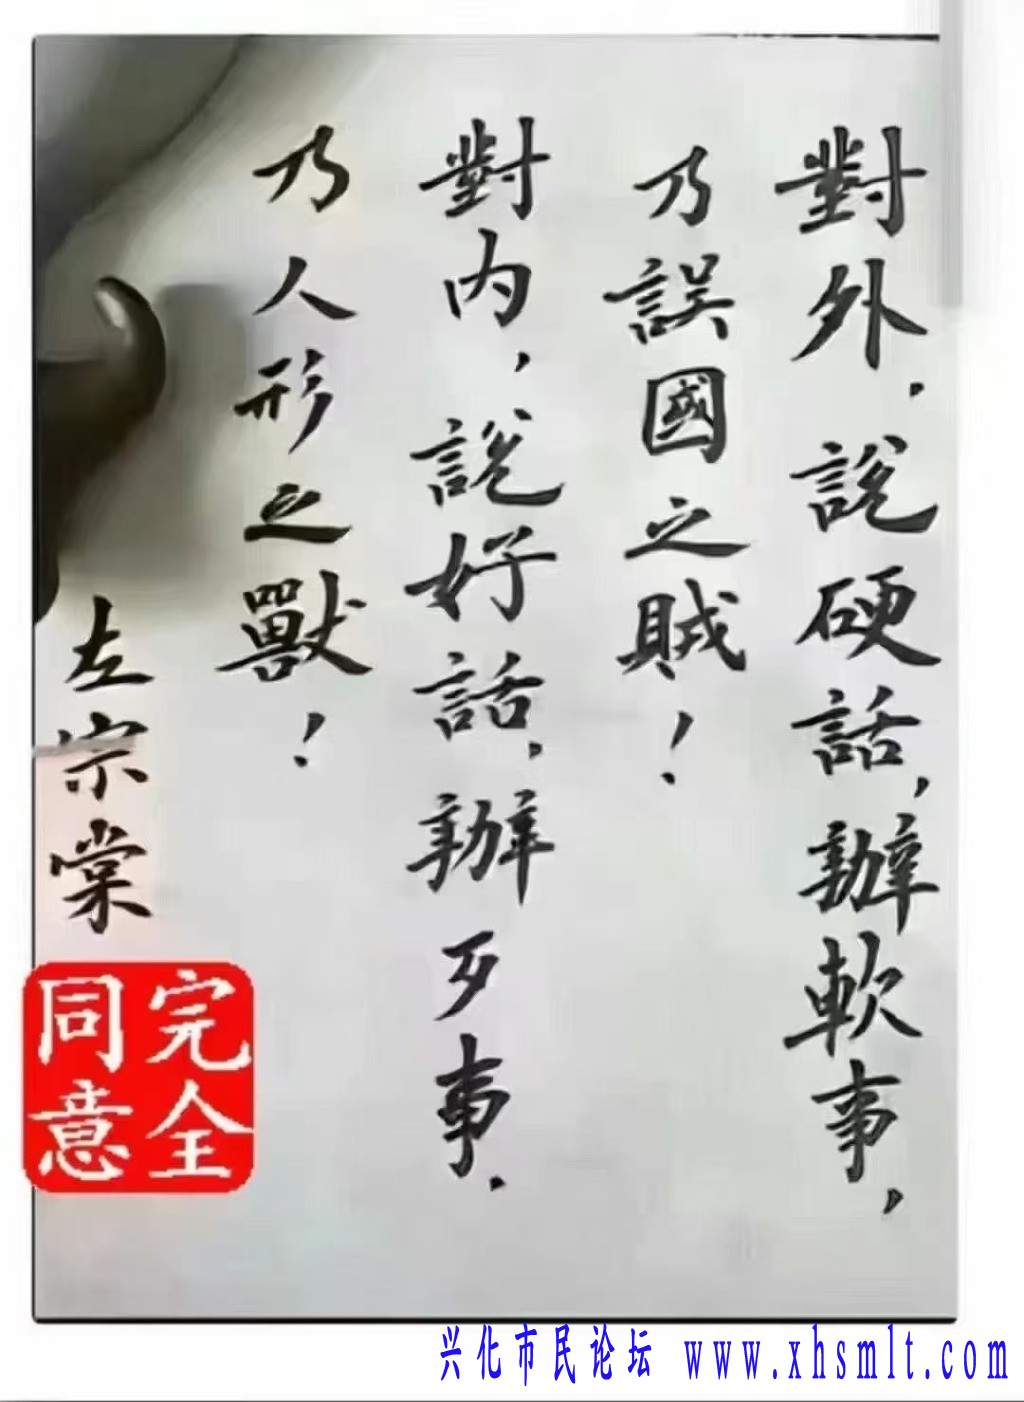 對外，説硬話，辦軟事，
乃誤國之賊！
對内，説好話，辦歹事．
乃人形之獸！
左宗棠
完全
同意
兴化市民论坛 www.xhsmlt.com